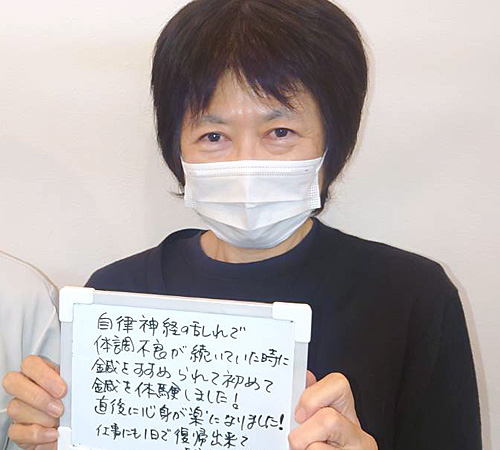 自律神経の乱れで
体調不良が続いていた時に
鍼をすすめられて初めて
鍼を体験しました!
直後に心身が楽になりました!
仕事にも1日で復帰出来て